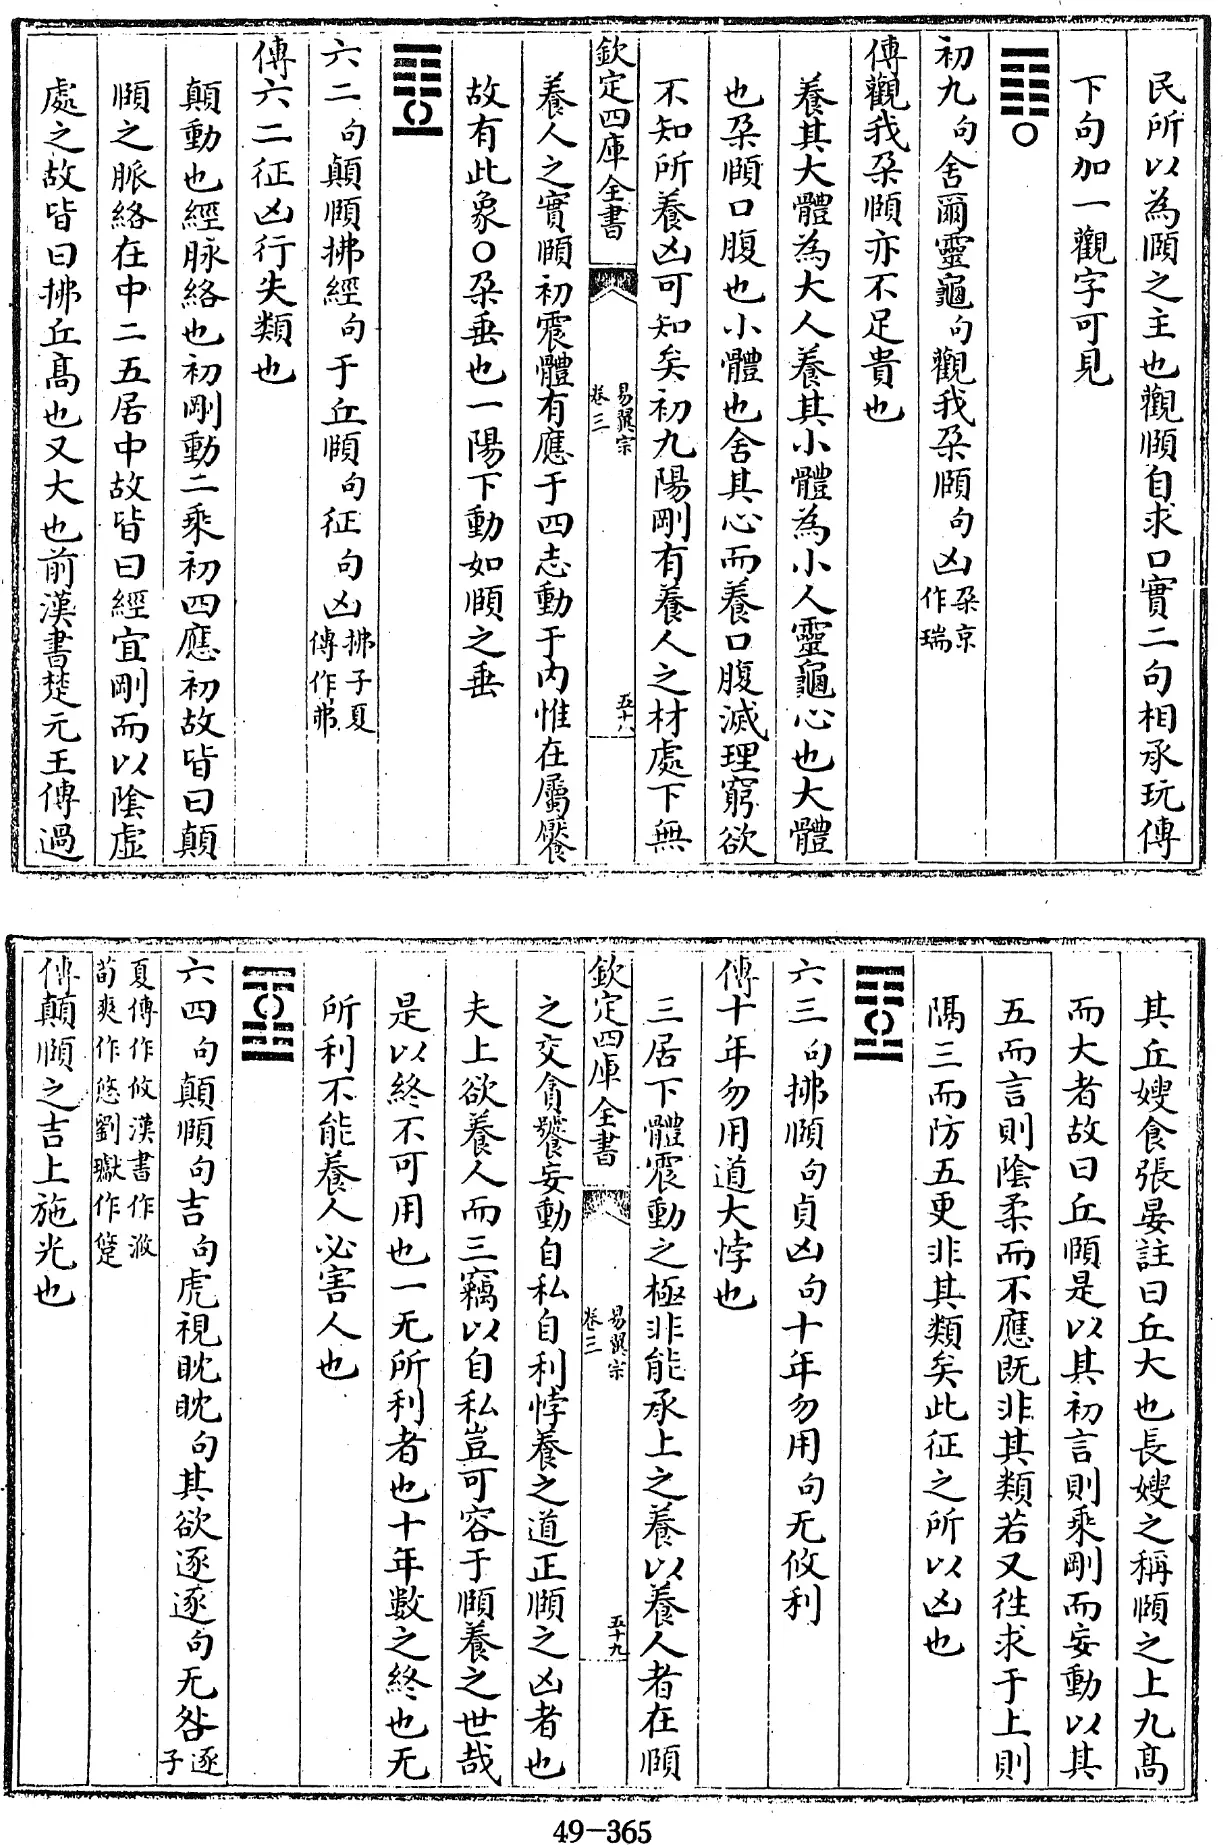 民所以為頤之主也觀頤自求口實二句相承玩傳
下句加一觀字可見
初九句舍爾靈龜句觀我朶頤句凶朶京作瑞
傳觀我朶頤亦不足貴也
養其大體為大人養其小體為小人靈龜心也大體
也朶頤口腹也小體也舍其心而養口腹滅理窮欲
不知所養凶可知矣初九陽剛有養人之材處下無
欽定四庫全書
易翼宗
卷三
五十八
養人之實頤初震體有應于四志動于内惟在屬饜
故有此象○朶垂也一陽下動如頤之垂
六二句顛頤拂經句于丘頤句征句凶拂子夏傳作弗
傳六二征凶行失類也
顛動也經脉絡也初剛動二乘初四應初故皆曰顛
頤之脈絡在中二五居中故皆曰經宜剛而以陰虛
處之故皆曰拂丘高也又大也前漢書楚元王傳過
其丘嫂食張晏註曰丘大也長嫂之稱頤之上九高
而大者故曰丘頤是以其初言則乘剛而妄動以其
五而言則陰柔而不應既非其類若又徃求于上則
隔三而防五更非其類矣此征之所以凶也
六三句拂頤句貞凶句十年勿用句无攸利
傳十年勿用道大悖也
三居下體震動之極非能承上之養以養人者在頤
欽定四庫全書
易翼宗
卷三
五十九
之交貪饕妄動自私自利悖養之道正頤之凶者也
夫上欲養人而三竊以自私豈可容于頤養之世哉
是以終不可用也一无所利者也十年數之終也无
所利不能養人必害人也
六四句顛頤句吉句虎視眈眈句其欲逐逐句无咎逐子
夏傳作攸漢書作浟荀爽作悠劉瓛作跾
傳顛頤之吉上施光也
49-365